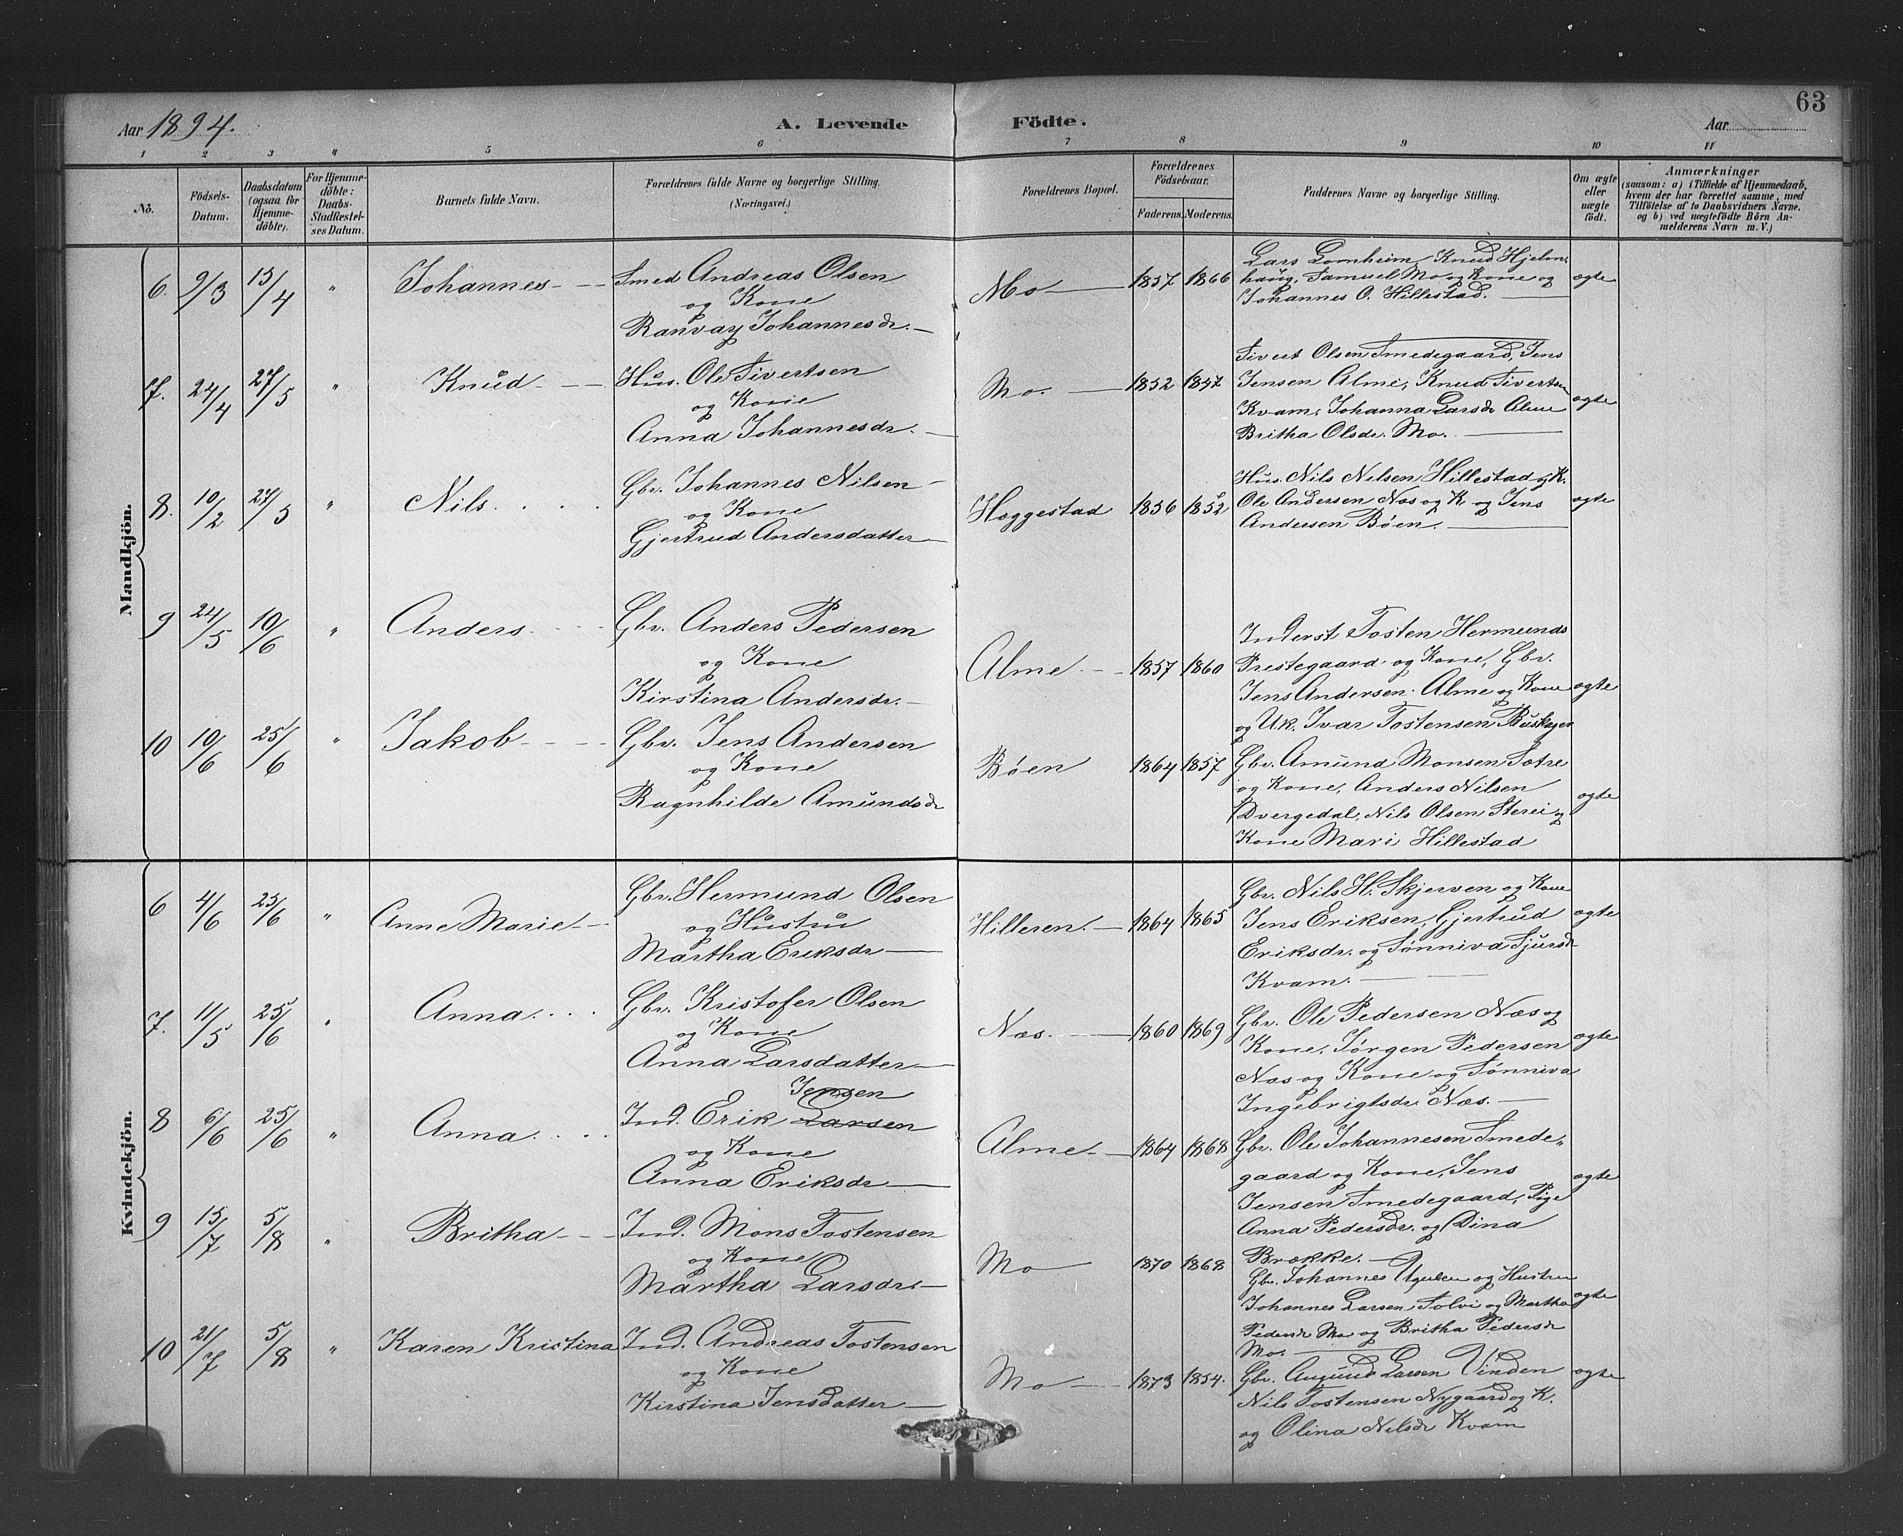 63
Aar 1894. A. Levende Födte. Aar
1 2 3 4 5 6 7 8 9 10 11
No. Födsels-Datum. Daabsdatum (ogsaa for Hjemme-döbte). For Hjemme-döbte: Daabs-Stadfæstel-ses Datum. Barnets fulde Navn. Forældrenes fulde Navne og borgerlige Stilling. (Næringsvei.) Forældrenes Bopæl. Forældrenes Födselsaar. Faderens. Moderens. Faddernes Navne og borgerlige Stilling. Om ægte eller uægte födt. Anmærkninger (saasom: a) i Tilfælde af Hjemmedaab, hvem der har forrettet samme, med Tilföielse af to Daabsvidners Navne, og b) ved uægtefödte Börn An-melderens Navn m. V.)
Mandkjön.
6. 9/3 15/4 " Johannes Smed Andreas Olsen
og Kone
Ranvay Johannesdr.
Mo 1857 1866
Lars Lomheim, Knud Hjelm-
haug, Samuel Mo og Kone og
Johannes O. Hillestad.
ægte
7. 24/4 27/5 " Knud Hus. Ole Sivertsen
og Kone
Anna Johannesdr.
Mo. 1852 1857
Sivert Olsen Smedegaard, Jens
Jensen Alme, Knud Sivertsen
Kvam, Johanna Larsdr Alme
Britha Olsdr. Mo.
ægte
8. 10/2 27/5 " Nils Gbr. Johannes Nilsen
og Kone
Gjertrud Andersdatter
Hæggestad 1856 1852
Hus. Nils Nilsen Hillestad og K.
Ole Andersen Næs og K. og Jens
Andersen Böen.
ægte
9 24/5 10/6 " Anders Gbr. Anders Pedersen
og Kone
Kirstina Andersdr.
Alme 1857 1860
Inderst Tosten Hermunds
Prestegaard og Kone, Gbr.
Jens Andersen Alme og Kone
og U.k. Ivar Tostensen
ægte
10 10/6 25/6 " Jakob Gbr. Jens Andersen
og Kone
Ragnhilde Amundsdr
Böen 1864 1857
Gbr. Amund Monsen Sætre
og Kone, Anders Nilsen
Dvergedal, Nils Olsen Sterei og
Kone Mari Hillestad
ægte
Kvindekjön.
6 4/6 25/6 " Anne Marie Gbr. Hermund Olsen
og Hustru
Martha Eriksdr
Hilleren. 1864 1865
Gbr. Nils H. Skjerven og Kone
Jens Eriksen, Gjertrud
Eriksdr. og Sønniva Sjursdr
Kvam.
ægte
7. 11/5 25/6 " Anna Gbr. Kristofer Olsen
og Kone
Anna Larsdatter
Næs. 1860 1869
Gbr. Ole Pedersen Næs og
Kone, Jørgen Pedersen
Næs og Kone og Sønniva
Ingebrigtsdr Næs.
ægte
8 6/6 25/6 " Anna Jensen
Ind. Erik Larsen
og Kone
Anna Eriksdr
Alme 1864 1868
Gbr. Ole Johannesen Smede-
gaard og Kone, Jens
Jensen Smedegaard, Pige
Anna Pedersdr. og Dina
Brække.
ægte
9 15/7 5/8 " Britha Ind. Mons Tostensen
og Kone
Martha Larsdr
Mo 1870 1868
Gbr. Johannes og Hustru
Johannes Larsen Solvi og Martha
Pedersdr Mo og Britha Pedersdr
Mo.
ægte
10 21/7 5/8 " Karen Kristina Ind. Andreas Tostensen
og Kone
Kirstina Jensdatter
Mo 1873 1854.
Gbr. Amund Larsen Vinden
Nils Tostensen Nygaard og K.
og Olina Nilsdr Kvam
ægte